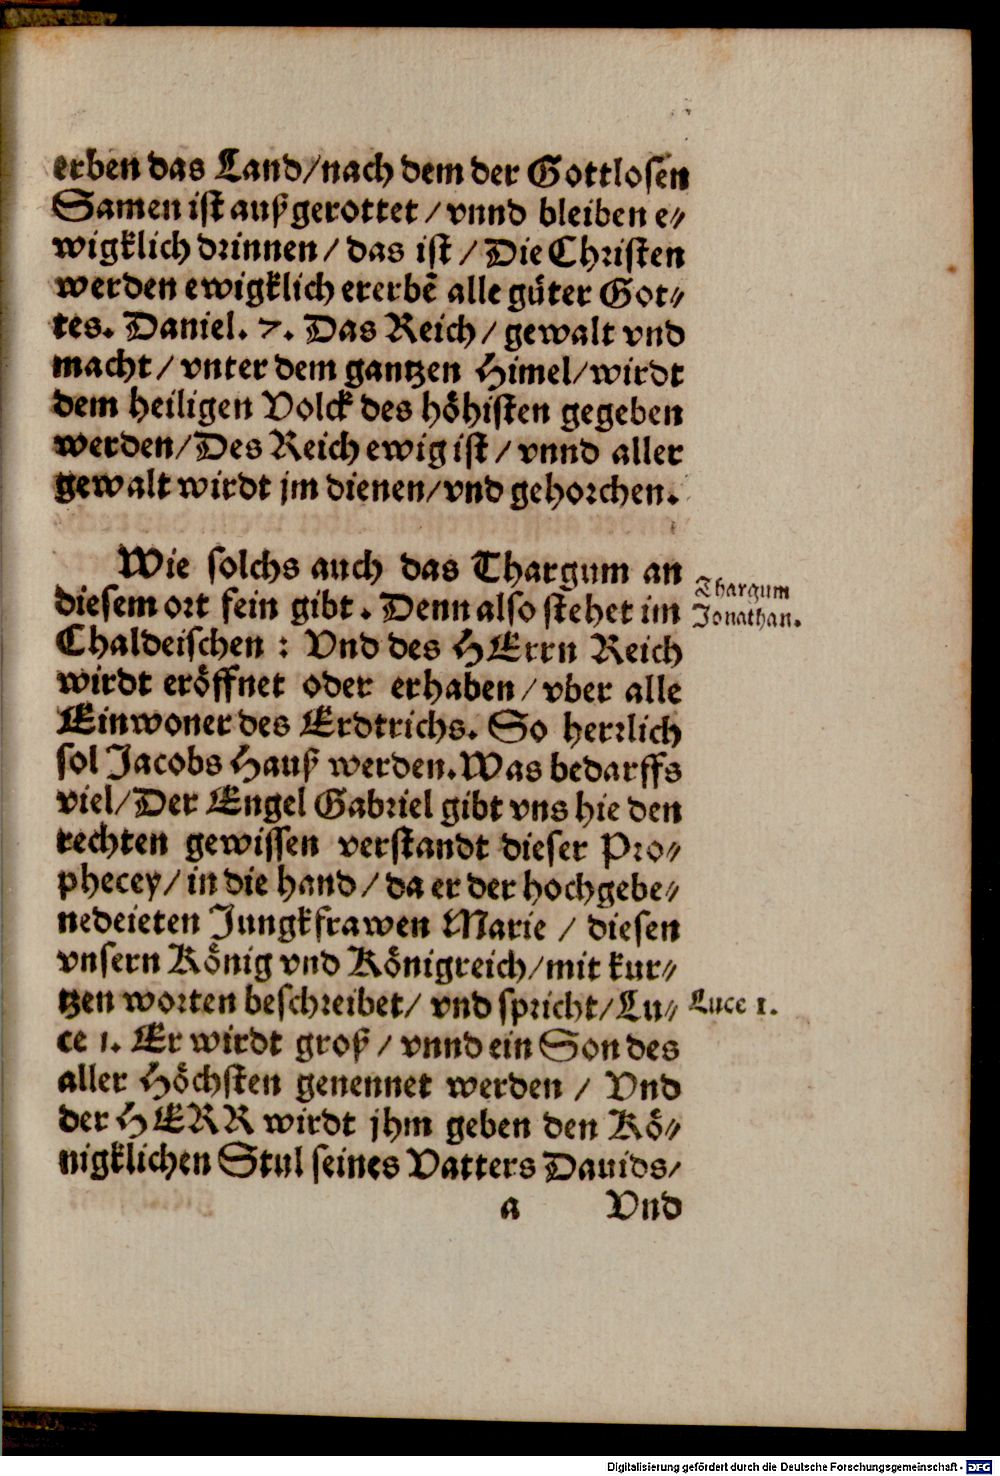 erben das Land/nach dem der Gottlosen
Samen ist außgerottet / vnnd bleiben e⸗
wigklich drinnen / das ist / Die Christen
werden ewigklich ererbẽ alle güter Got⸗
tes. Daniel. 7. Das Reich / gewalt vnd
macht / vnter dem gantzen Himel/wirdt
dem heiligen Volck des höhisten gegeben
werden/Des Reich ewig ist / vnnd aller
gewalt wirdt jm dienen/vnd gehorchen.
Wie solchs auch das Thargum an
diesem ort fein gibt. Denn also stehet im
Chaldeischen : Vnd des HErrn Reich
wirdt eröffnet oder erhaben / vber alle
Einwoner des Erdtrichs. So herrlich
sol Jacobs Hauß werden. Was bedarffs
viel/Der Engel Gabriel gibt vns hie den
rechten gewissen verstandt dieser Pro⸗
phecey/ in die hand / da er der hochgebe⸗
nedeieten Jungkfrawen Marie / diesen
vnsern König vnd Königreich/mit kur⸗
tzen worten beschreibet/ vnd spricht/Lu⸗
ce 1. Er wirdt groß / vnnd ein Son des
aller Höchsten genennet werden / Vnd
der HERR wirdt jhm geben den Kö⸗
nigklichen Stul seines Vatters Dauids/
a Vnd
Thargum
Jonathan.
Luce 1.
Digitalisierung gefördert durch die Deutsche Forschungsgemeinschaft - DFG